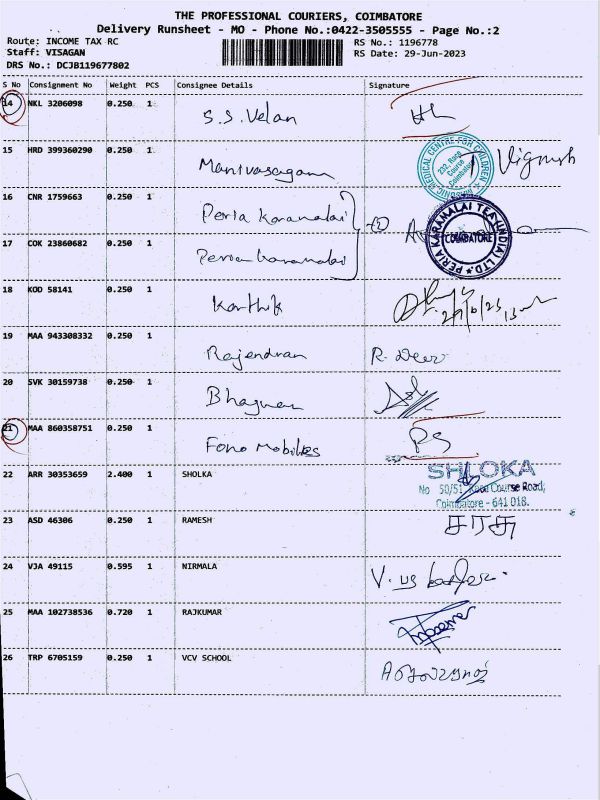 THE PROFESSIONAL COURIERS, COIMBATORE
Delivery Runsheet - MO - Phone No.:0422-3505555 - Page No.:2
Route: INCOME TAX RC
Staff: VISAGAN
DRS No.: DCJB119677802
RS No.: 1196778
RS Date: 29-Jun-2023
S No Consignment No Weight PCS Consignee Details Signature
14 NKL 3206098 0.250 1 S.S. Velan
15 HRD 399360290 0.250 1 Manivasagam Vignesh
MEDICAL CENTRE FOR CHILDREN
232, Race
Course
Coimbatore
16 CNR 1759663 0.250 1 Peria Karamalai
PERIA KARAMALAI TEA (INDIA) LTD
COIMBATORE
17 COK 23860682 0.250 1 Peria karamalai
18 KOD 58141 0.250 1 Karthik
19 MAA 943308332 0.250 1 Rajendran R. Devi
20 SVK 30159738 0.250 1 Bhagwan
21 MAA 860358751 0.250 1 Fono Mobiles PS
22 ARR 30353659 2.400 1 SHOLKA
SHLOKA
No 50/51, Race Course Road,
Coimbatore - 641 018.
23 ASD 46306 0.250 1 RAMESH
24 VJA 49115 0.595 1 NIRMALA
25 MAA 102738536 0.720 1 RAJKUMAR
26 TRP 6705159 0.250 1 VCV SCHOOL